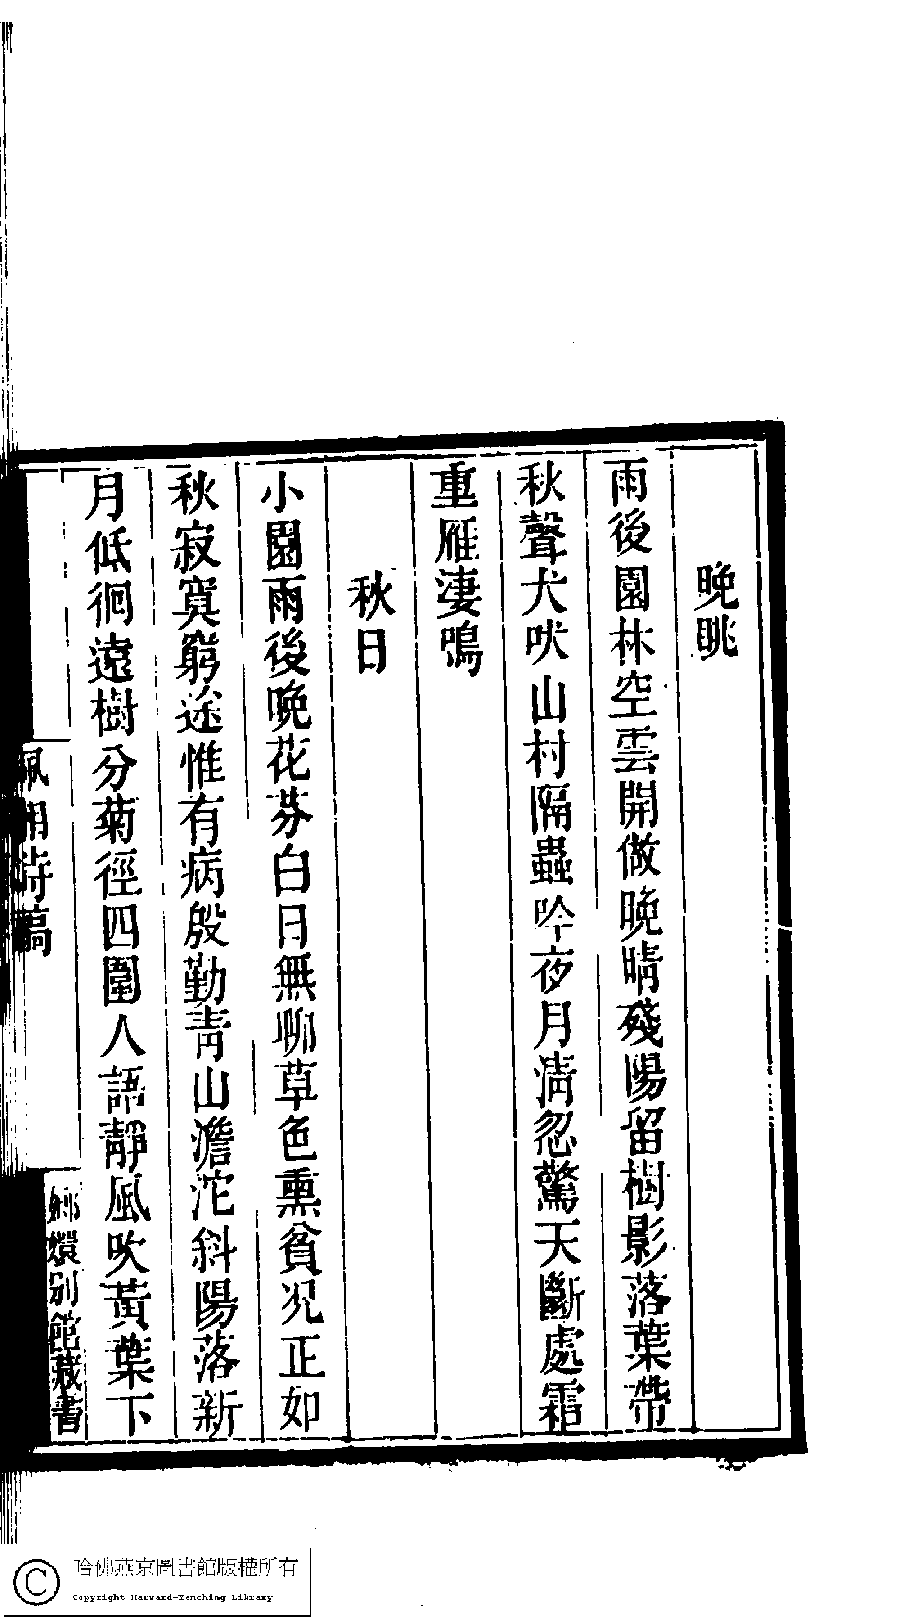 晚眺
雨後園林空雲開倣晚晴殘陽留樹影落葉帶
秋聲犬吠山村隔蟲吟夜月淸忽驚天斷處霜
重雁淒鳴
秋日
小園雨後晚花芬白日無聊草色熏貧况正如
秋寂寞窮途惟有病殷勤靑山澹沱斜陽落新
月低徊遠樹分菊徑四圍人語靜風吹黃葉下
詩稿
嫏嬛別館藏書
哈佛燕京圖書館版權所有
Copyright Harvard-Yenching Library